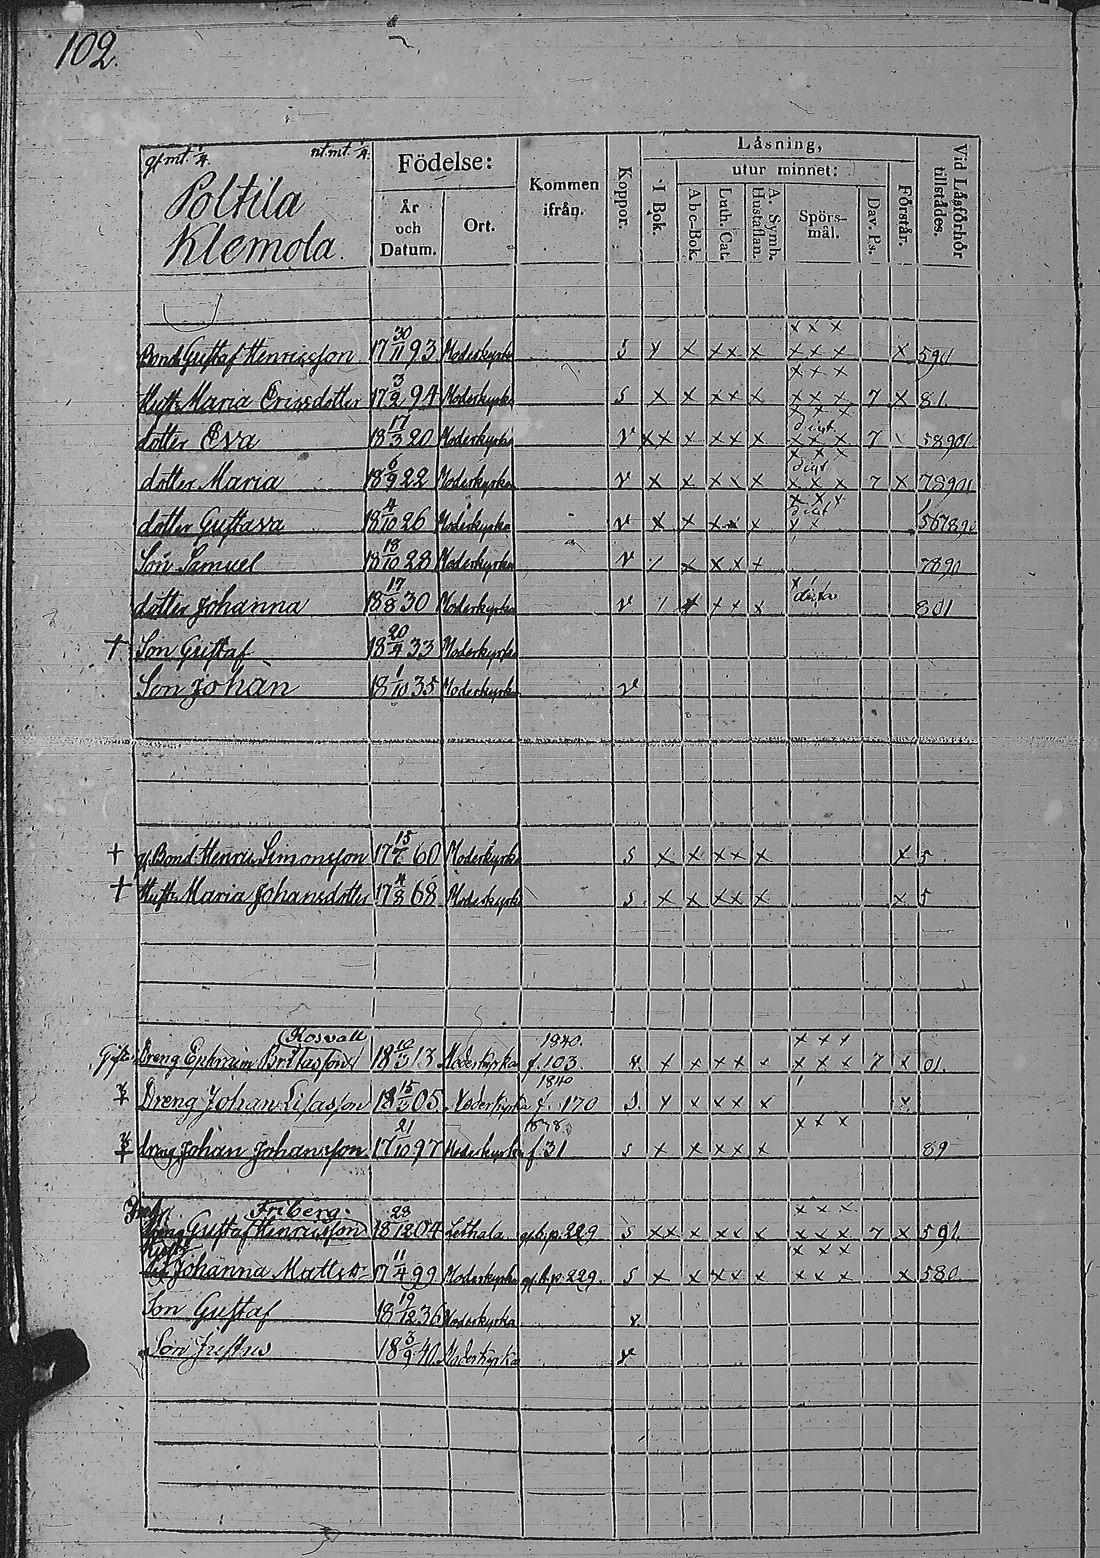 102.
gl. mt. 1/4. nt. mt. 1/4.
Poltila
Klemola.
Födelse:
År och Datum.
Ort.
Kommen ifrån.
Koppor.
Läsning,
I Bok.
utur minnet:
Abc-Bok.
Luth. Cat.
A. Symb. Hustaflan.
Spörs-mål.
Dav. Ps.
Förstår.
Vid Läsförhör tillstädes.
x x x
Bond. Gustaf Henricsson 17 30/11 93 Moderkyrka S x x x x x x x x 590.
x x x
Hust. Maria Ericsdotter 17 3/2 94 Moderkyrka S x x x x x x x x 7 x 81.
x x x
dotter Eva 18 17/3 20 Moderkyrka v x x x x x x x x x 7 58901.
x x x
dotter Maria 18 6/9 22 Moderkyrka v x x x x x x x x 7 x 78901
x x x
dotter Gustava 18 4/10 26 Moderkyrka v x x x x x x x 567890
Son Samuel 18 18/10 28 Moderkyrka v / x x x x 7890
dotter Johanna 18 17/8 30 Moderkyrka v / x x x x 801
† Son Gustaf 18 20/4 33 Moderkyrka
Son Johan 18 1/10 35 Moderkyrka v
† gl. Bond. Henric Simonsson 17 15/7 60 Moderkyrka S x x x x x x 5
† Hust. Maria Johansdotter 17 4/8 68 Moderkyrka S x x x x x x 5
Rosvall 1840. x x x
Gift Dreng Ephraim Britasson 18 10/3 13 Moderkyrka f. 103 v. x x x x x x x x 7 x 01.
1840
Dreng Johan Lisasson 18 05 Moderkyrka f. 170 S. x x x x x x
x x x
dreng Johan Johansson 17 21/10 97 Moderkyrka f. 31 S x x x x x 89
Friberg. x x x
Dreng Gustaf Henricsson 18 28/12 04 Lethala gl. b. p. 229 S x x x x x x x x x 7 x 591.
Hust. x x x
Johanna Mattsdr 17 11/4 99 Moderkyrka gl. b. p. 229. S x x x x x x x x x 580.
Son Gustaf 18 19/12 36 Moderkyrka v.
Son Justus 18 3/9 40 Moderkyrka v